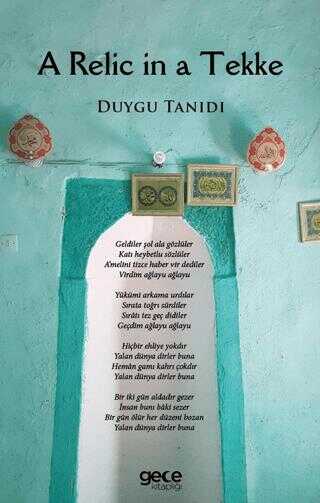 A Relic in a Tekke
DUYGU TANIDI
Geldiler şol ala gözlüler
Katı heybetlu sözlüler
A'melini tizce haber vir dediler
Virdim ağlayu ağlayu
Yükümi arkama urdılar
Sırata toğrı sürdiler
Sırâtı tez geç didiler
Geçdim ağlayu ağlayu
Hiçbir ehliye yokdır
Yalan dünya dirler buna
Hemân gamı kahrı çokdır
Yalan dünya dirler buna
Bir iki gün aldadır gezer
İnsan bunı bâki sezer
Bir gün ölür her düzeni bozan
Yalan dünya dirler buna
gece
kitaplığı